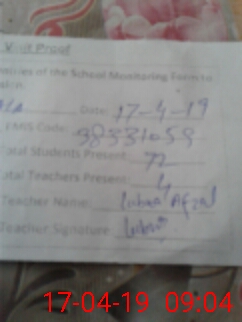 Visit Proof
of the School Monitoring Form to
Date: 17-4-19
EMIS Code:
Total Students Present: 72
Total Teachers Present: 4
Teacher Name: Lubna Afzal
Teacher Signature Lubna
17-04-19 09:04